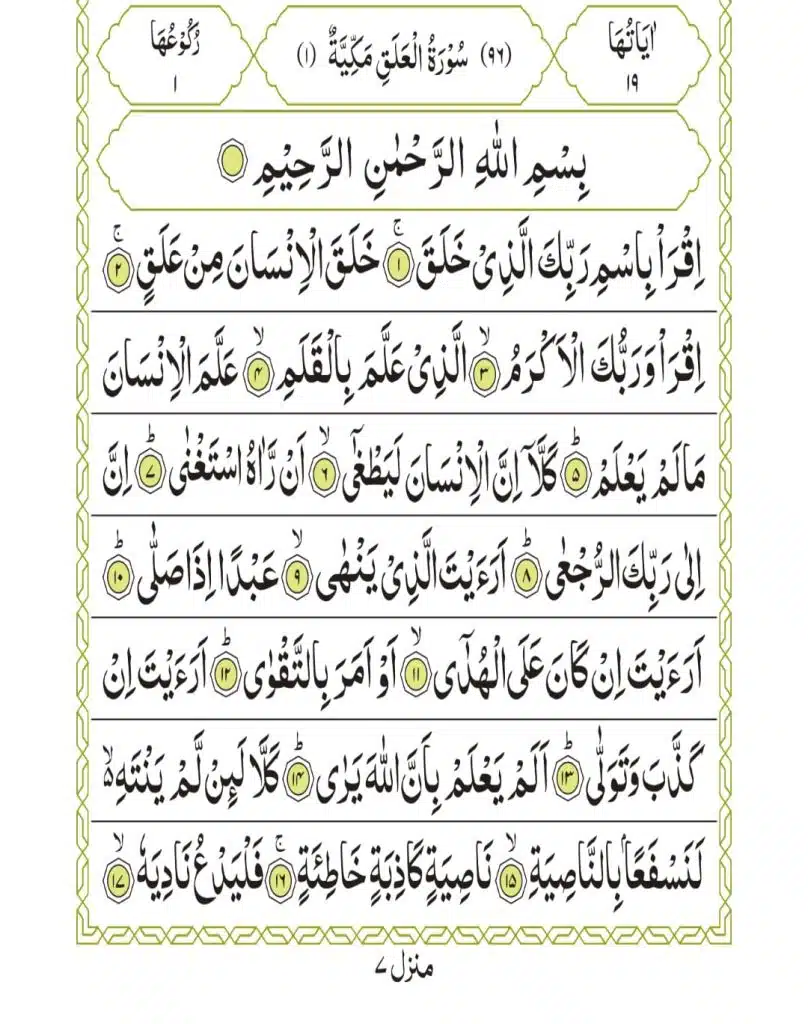 اٰيَاتُهَا ١٩ (٩٦) سُوْرَةُ الْعَلَقِ مَكِّيَّةٌ (١) رُكُوْعُهَا ١
بِسْمِ اللّٰهِ الرَّحْمٰنِ الرَّحِيْمِ
اِقْرَاْ بِاسْمِ رَبِّكَ الَّذِىْ خَلَقَ ۚ‏ ﴿١﴾ خَلَقَ الْاِنْسَانَ مِنْ عَلَقٍ‌ۚ‏ ﴿٢﴾
اِقْرَاْ وَرَبُّكَ الْاَكْرَمُۙ‏ ﴿٣﴾ الَّذِىْ عَلَّمَ بِالْقَلَمِۙ‏ ﴿٤﴾ عَلَّمَ الْاِنْسَانَ
مَا لَمْ يَعْلَمْؕ‏ ﴿٥﴾ كَلَّاۤ اِنَّ الْاِنْسَانَ لَيَطْغٰٓىۙ‏ ﴿٦﴾ اَنْ رَّاٰهُ اسْتَغْنٰىؕ‏ ﴿٧﴾ اِنَّ
اِلٰى رَبِّكَ الرُّجْعٰىؕ‏ ﴿٨﴾ اَرَءَيْتَ الَّذِىْ يَنْهٰىۙ‏ ﴿٩﴾ عَبْدًا اِذَا صَلّٰىؕ‏ ﴿١٠﴾
اَرَءَيْتَ اِنْ كَانَ عَلَى الْهُدٰٓىۙ‏ ﴿١١﴾ اَوْ اَمَرَ بِالتَّقْوٰىؕ‏ ﴿١٢﴾ اَرَءَيْتَ اِنْ
كَذَّبَ وَتَوَلّٰىؕ‏ ﴿١٣﴾ اَلَمْ يَعْلَمْ بِاَنَّ اللّٰهَ يَرٰىؕ‏ ﴿١٤﴾ كَلَّا لَئِنْ لَّمْ يَنْتَهِ ۙ
لَنَسْفَعًۢا بِالنَّاصِيَةِۙ‏ ﴿١٥﴾ نَاصِيَةٍ كَاذِبَةٍ خَاطِئَةٍ‌ۚ‏ ﴿١٦﴾ فَلْيَدْعُ نَادِيَهٗۙ‏ ﴿١٧﴾
منزل ٧